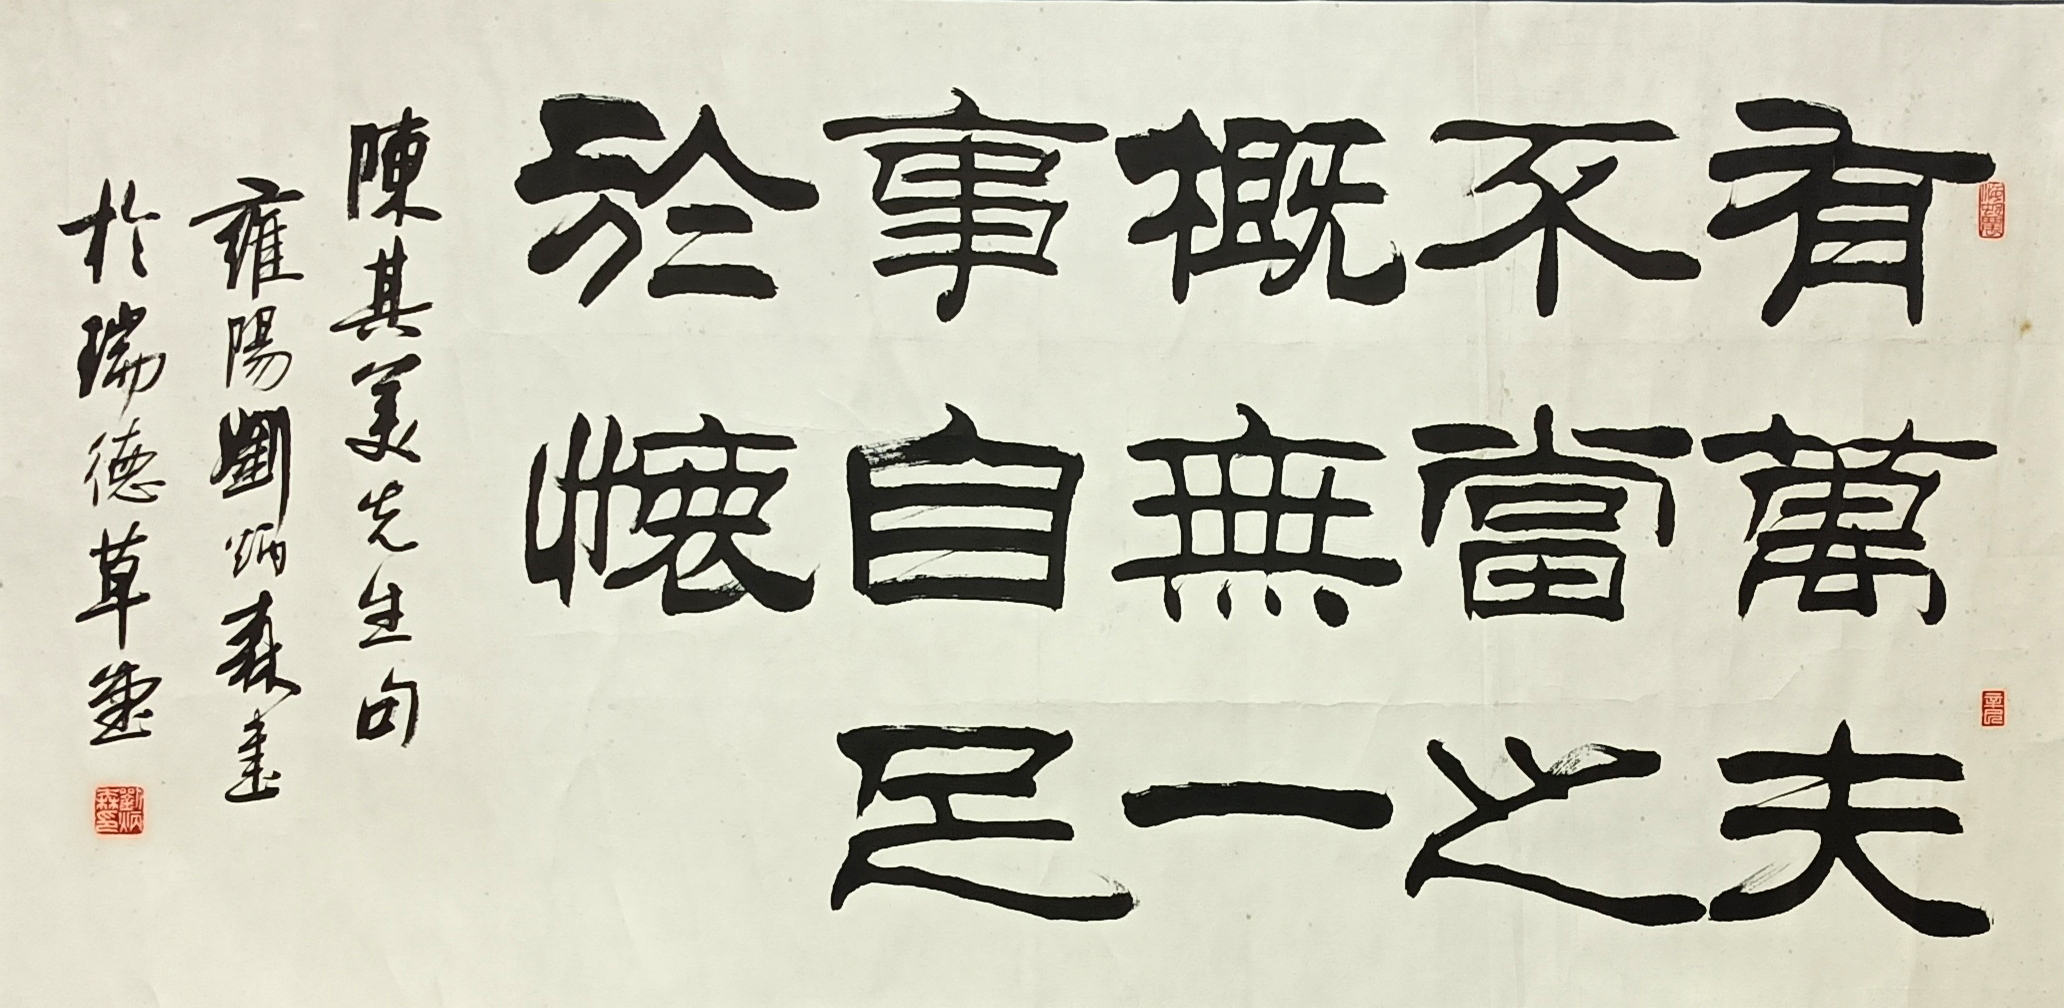 有萬夫
不當之
概無一
事自足
於懷
陳其美先生句
雍陽劉炳森書
於瑞德草堂
劉炳森印